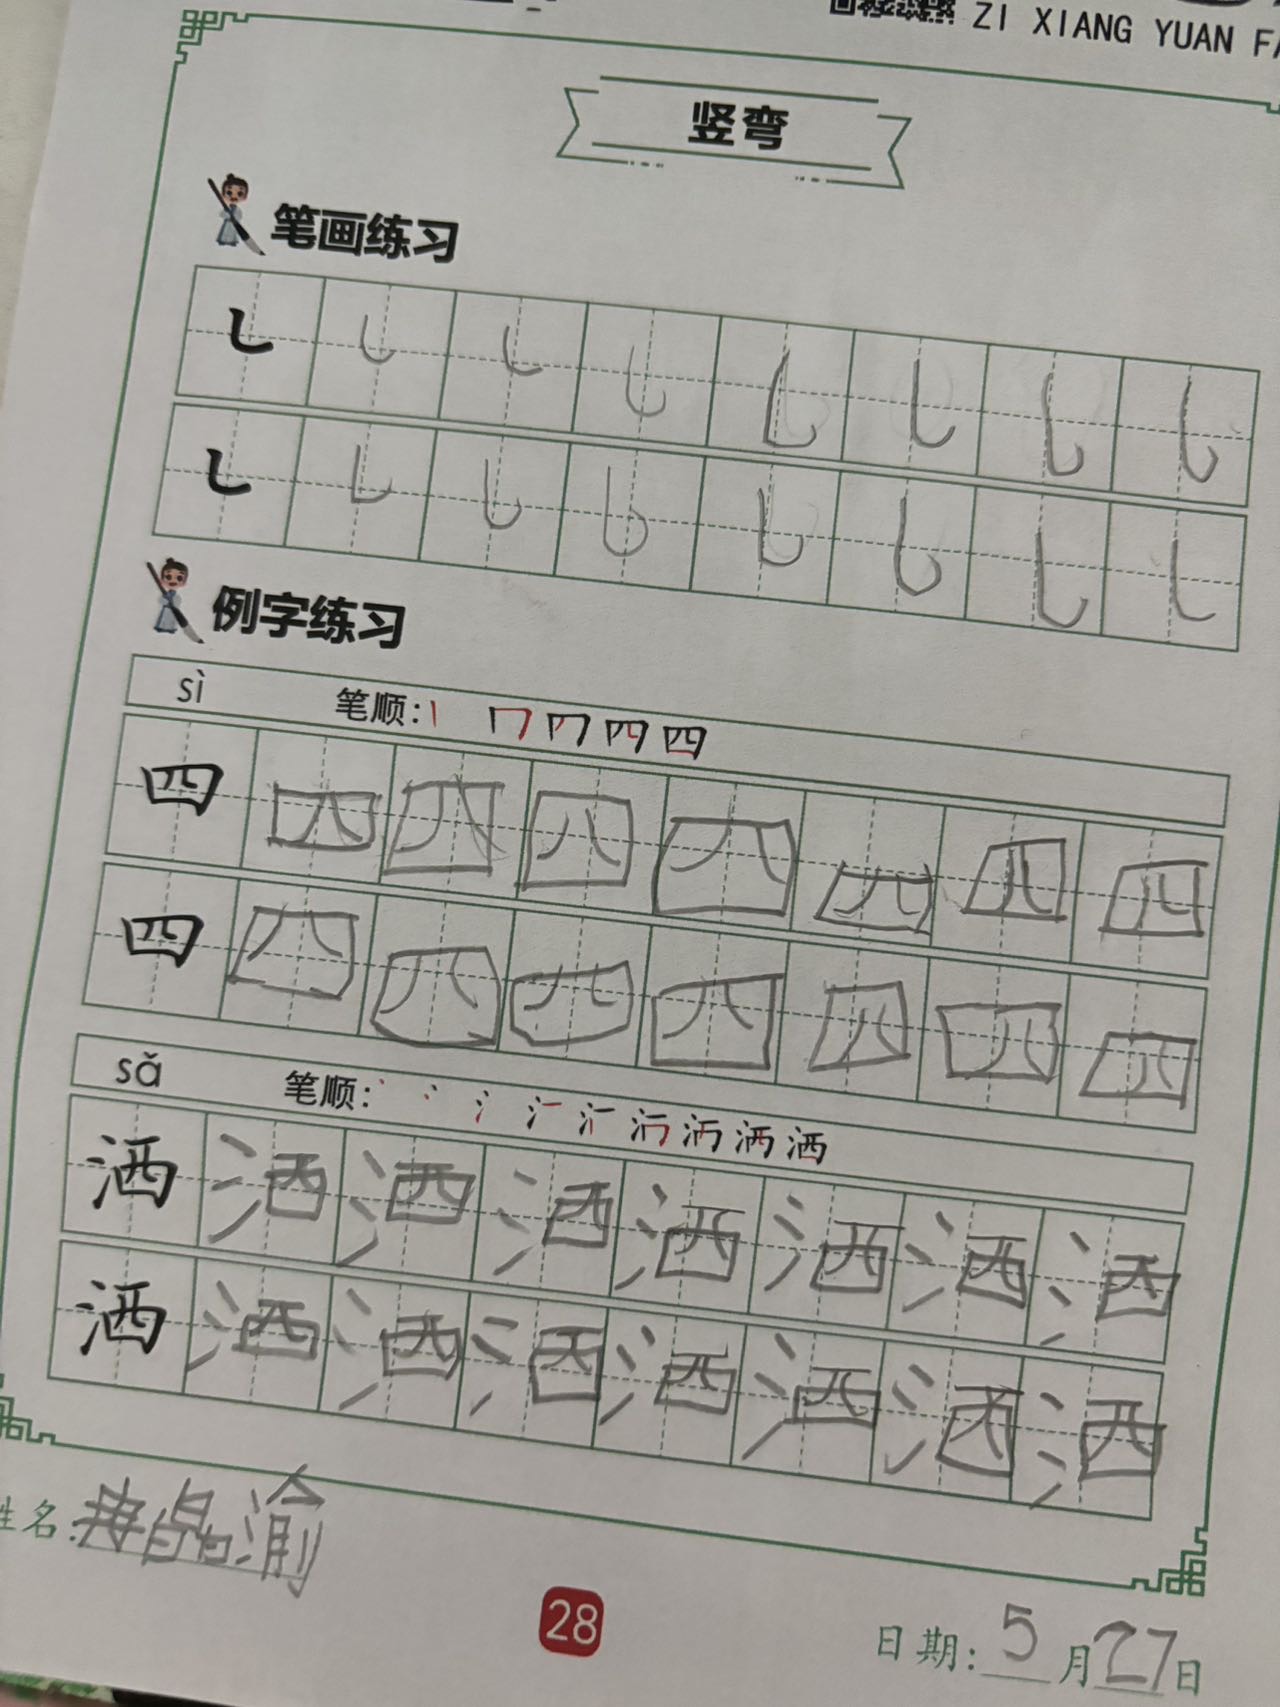 ZI XIANG YUAN FA
竖弯
笔画练习
㇄ ㇄ ㇄ ㇄ ㇄ ㇄ ㇄ ㇄
㇄ ㇄ ㇄ ㇄ ㇄ ㇄ ㇄ ㇄
例字练习
sì 笔顺:
四 四 四 四 四 四 四 四
四 四 四 四 四 四 四 四
sǎ 笔顺:
洒 洒 洒 洒 洒 洒 洒 洒
洒 洒 洒 洒 洒 洒 洒 洒
姓名: 晶渝
28
日期: 5月27日